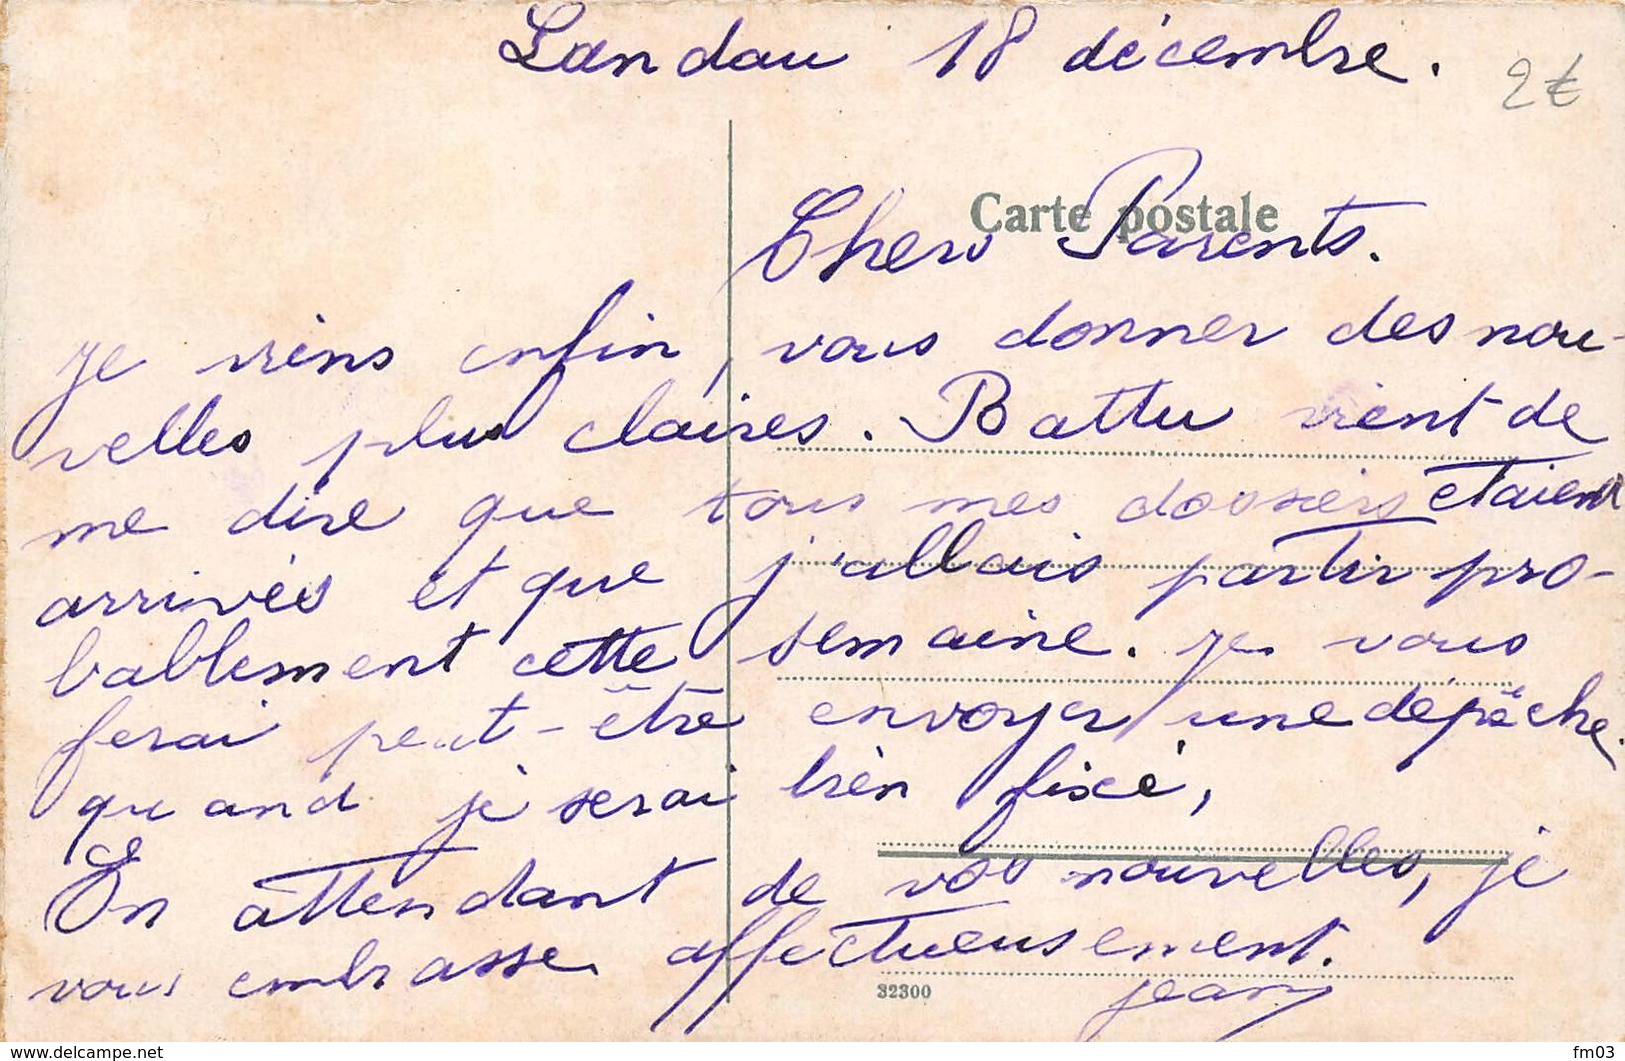 Landau 18 décembre.
2€
Carte postale
Chers Parents.
Je viens enfin, vous donner des nou-
velles plus claires. Battu vient de
me dire que tous mes dossiers etaient
arrivés et que j'allais partir pro-
bablement cette semaine. Je vous
ferai peut-être envoyer une dépêche
quand je serai bien fixé,
En attendant de vos nouvelles, je
vous embrasse affectueusement.
32300
Jean
www.delcampe.net
fm03